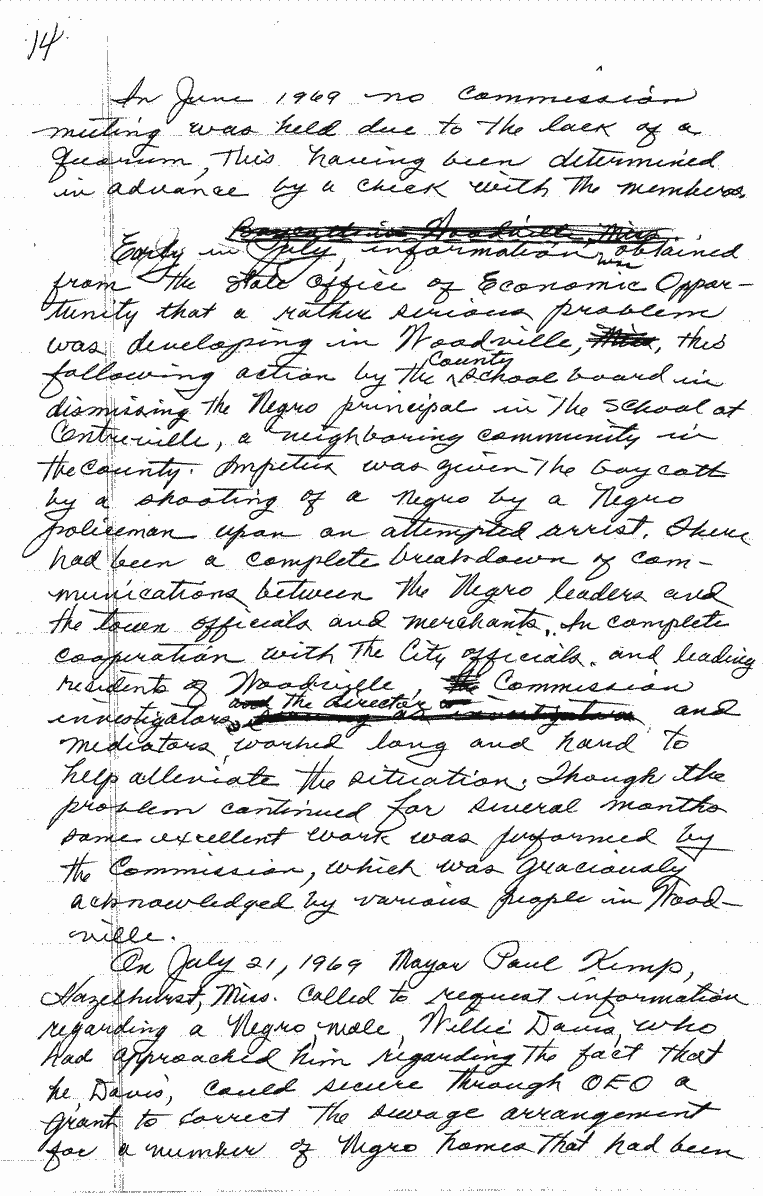 14
In June 1969 no Commission
meeting was held due to the lack of a
quorum, this having been determined
in advance by a check with the members.
Boycott in Woodville, Miss.
Early in July, information was obtained
from the State Office of Economic Oppor-
tunity that a rather serious problem
was developing in Woodville, Miss, this
following action by the County School board in
dismissing the Negro principal in the School at
Centreville, a neighboring community in
the County. Impetus was given the boycott
by a shooting of a Negro by a Negro
policeman upon an attempted arrest. There
had been a complete breakdown of com-
munications between the Negro leaders and
the town officials and merchants. In complete
cooperation with the City officials and leading
residents of Woodville, the Commission
and the director
investigators, serving as investigators and
mediators, worked long and hard to
help alleviate the situation. Though the
problem continued for several months
some excellent work was performed by
the Commission, which was graciously
acknowledged by various people in Wood-
ville.
On July 21, 1969 Mayor Paul Kemp,
Hazelhurst, Miss. called to request information
regarding a Negro male, Willie Davis, who
had approached him regarding the fact that
he Davis, could secure through OEO a
grant to correct the sewage arrangement
for a number of Negro homes that had been